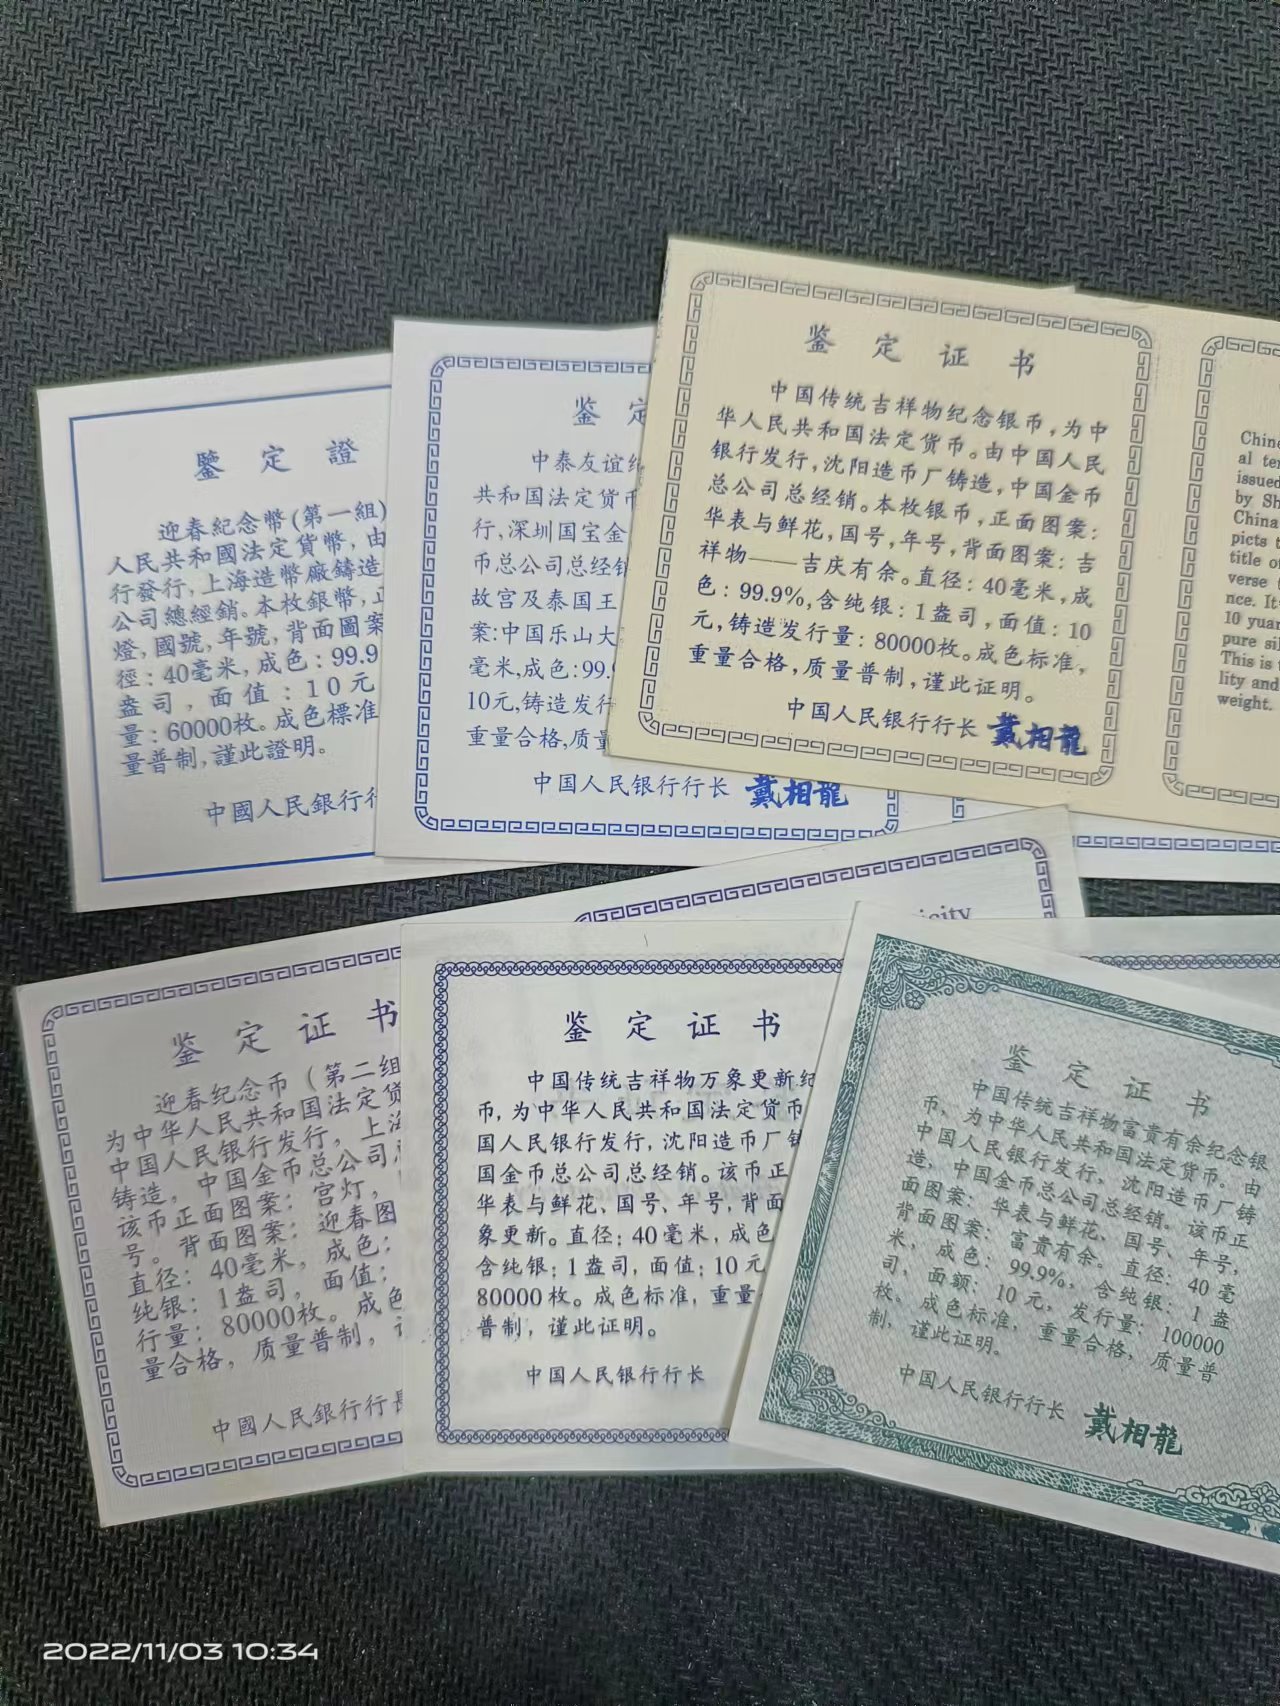 鑒定證
迎春紀念幣(第一組)
人民共和國法定貨幣，由
行發行，上海造幣廠鑄造
公司總經銷。本枚銀幣，正
燈，國號，年號，背面圖案
徑：40毫米，成色：99.9
盎司，面值：10元
量：60000枚。成色標准
量普制，謹此證明。
中國人民銀行行
鉴定
中泰友谊纪
共和国法定货币
行，深圳国宝金
币总公司总经销
故宫及泰国王
案：中国乐山大
毫米，成色：99.
10元，铸造发行
重量合格，质量
中国人民银行行长 戴相龍
鉴定证书
中国传统吉祥物纪念银币，为中
华人民共和国法定货币。由中国人民
银行发行，沈阳造币厂铸造，中国金币
总公司总经销。本枚银币，正面图案：
华表与鲜花，国号，年号，背面图案：吉
祥物——吉庆有余。直径：40毫米，成
色：99.9%，含纯银：1盎司，面值：10
元，铸造发行量：80000枚。成色标准，
重量合格，质量普制，谨此证明。
中国人民银行行长 戴相龍
Chine
al ten
issued
by Sh
China
picts t
title of
verse
nce. It
10 yuan
pure sil
This is
lity and
weight.
鉴定证书
迎春纪念币（第二组
为中华人民共和国法定货
中国人民银行发行，上海
铸造，中国金币总公司总
该币正面图案：宫灯，
号。背面图案：迎春图
直径：40毫米，成色：
纯银：1盎司，面值：
行量：80000枚。成色
量合格，质量普制，
中國人民銀行行長
icity
鉴定证书
中国传统吉祥物万象更新纪
币，为中华人民共和国法定货币
国人民银行发行，沈阳造币厂铸
国金币总公司总经销。该币正
华表与鲜花、国号、年号，背面
象更新。直径：40毫米，成色
含纯银：1盎司，面值：10元
80000枚。成色标准，重量
普制，谨此证明。
中国人民银行行长
鉴定证书
中国传统吉祥物富贵有余纪念银
币，为中华人民共和国法定货币。由
中国人民银行发行，沈阳造币厂铸
造，中国金币总公司总经销。该币正
面图案：华表与鲜花、国号、年号，
背面图案：富贵有余。直径：40毫
米，成色：99.9%，含纯银：1盎
司，面额：10元，发行量：100000
枚。成色标准，重量合格，质量普
制，谨此证明。
中国人民银行行长 戴相龍
2022/11/03 10:34